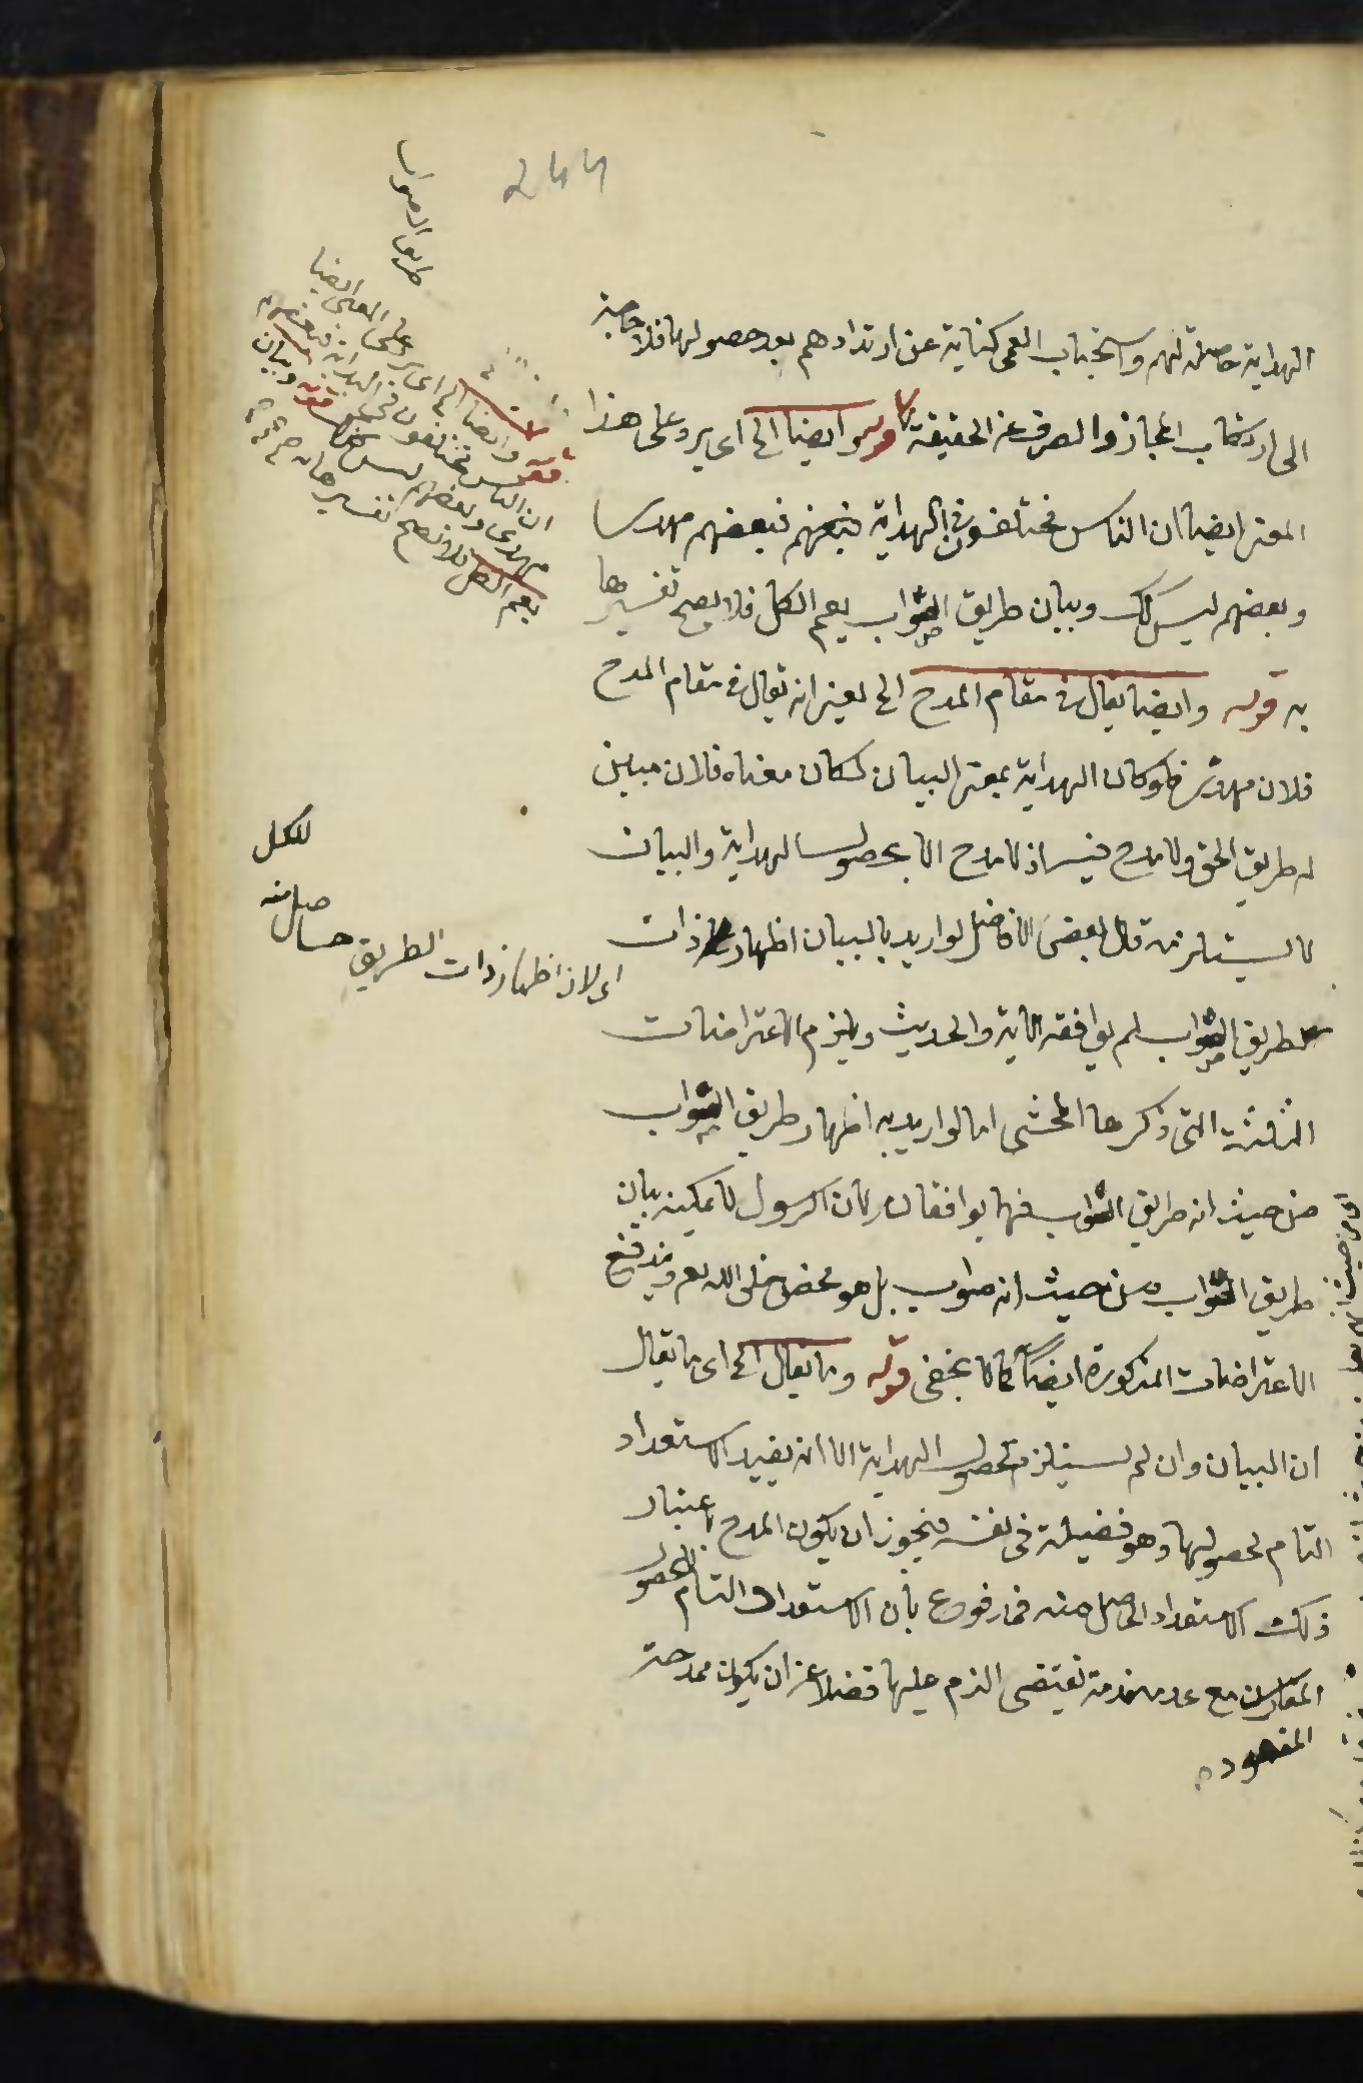 الهداية حاصلة لهم واستحباب العمى كناية عن ارتدادهم بعد حصولها فلا حاجة
الى ارتكاب المجاز والصرف عن الحقيقة قوله وايضا الخ اى يرد على هذا
المعنى ايضا ان الناس مختلفون فى الهداية فبعضهم مهدى
وبعضهم ليس كك وبيان طريق الصواب يعم الكل فلا يصح تفسيرها
به قوله وايضا يقال فى مقام المدح الخ يعنى انه يقال فى مقام المدح
فلان مهدى فلو كان الهداية بمعنى البيان لكان معناه فلان مبين
له طريق الحق ولا مدح فيه اذ لا مدح الا بحصول الهداية والبيان
لا يستلزمه قال بعض الافاضل لو اريد بالبيان اظهار ذات
طريق الصواب لم يوافقه الاية والحديث ويلزم الاعتراضات
الثلثة التى ذكرها المحشى اما لو اريد به اظهار طريق الصواب
من حيث انه طريق الصواب فهما يوافقان لان الرسول لا يمكنه بيان
طريق الصواب من حيث انه صواب بل هو محض خلق الله تعم ويندفع
الاعتراضات المذكورة ايضا كما لا يخفى قوله وما يقال الخ اى ما يقال
ان البيان وان لم يستلزم حصول الهداية الا انه يفيد الاستعداد
التام لحصولها وهو فضيلة فى نفسه فيجوز ان يكون المدح باعتبار
ذلك الاستعداد الحاصل منه فمدفوع بان الاستعداد التام لحصول
المقارن مع عدمه مذمة يقتضى الذم عليها فضلا عن ان يكون ممدحة
المقصود
طريق الصواب
قوله وايضا الخ اى يرد على المعنى ايضا
ان الناس مختلفون فى الهداية فبعضهم
مهدى وبعضهم ليس كك قوله وبيان
يعم الكل فلا يصح تفسيرها به
اى لان اظهار ذات الطريق حاصل منه
للكل